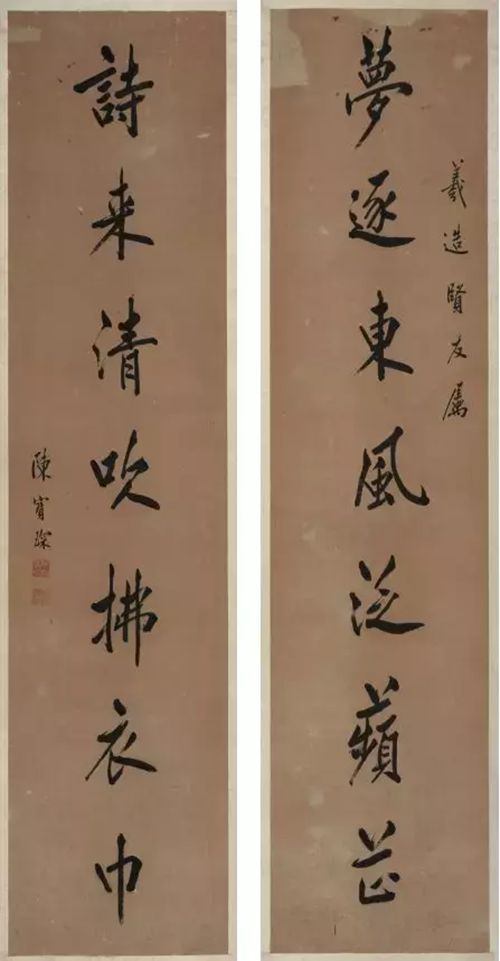 羲造賢友属
夢逐東風泛蘋芷
詩来清吹拂衣巾
陳寶琛